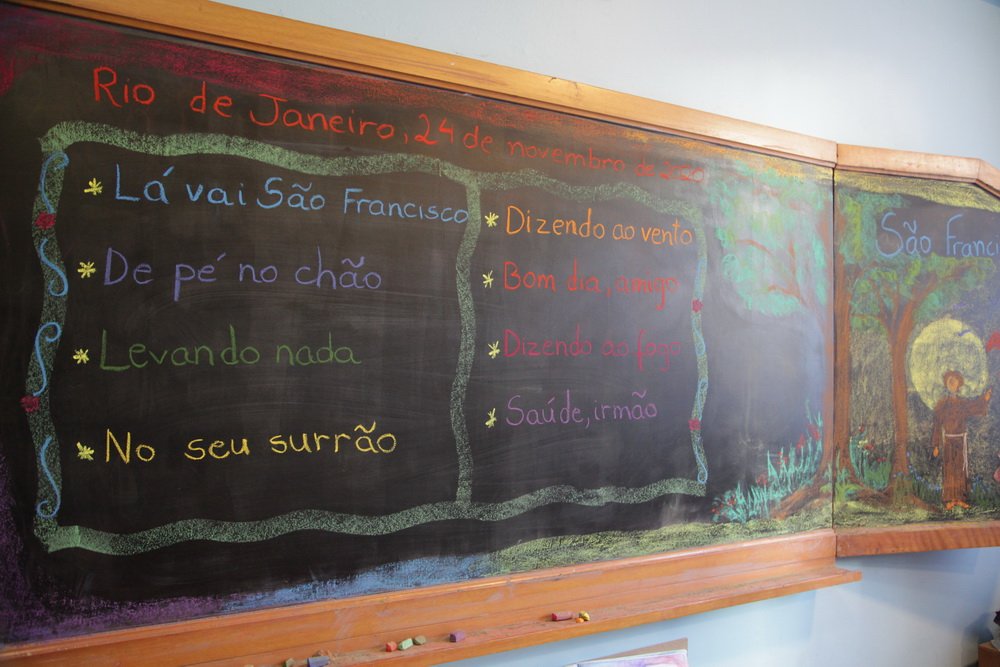 Rio de Janeiro, 24 de novembro de 2020
Lá vai São Francisco
De pé no chão
Levando nada
No seu surrão
Dizendo ao vento
Bom dia, amigo
Dizendo ao fogo
Saúde, irmão
São